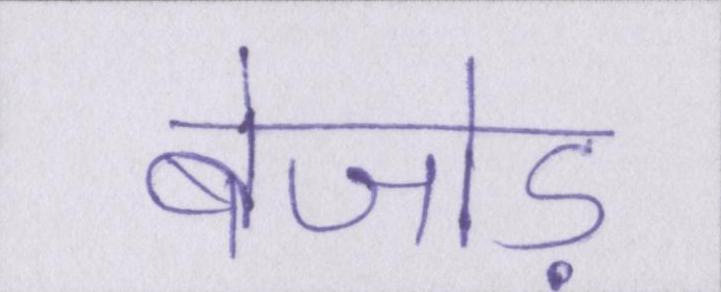 बेजोड़